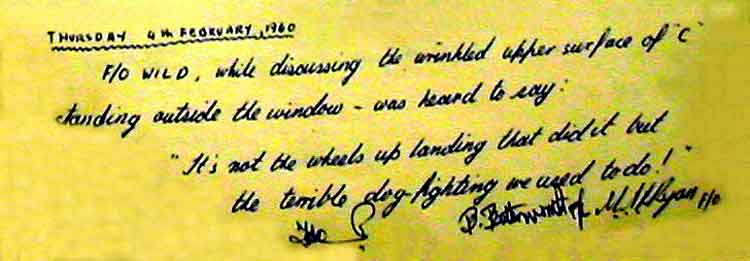 THURSDAY 4th FEBRUARY, 1960
F/O WILD, while discussing the wrinkled upper surface of "C"
standing outside the window - was heard to say:
"It's not the wheels up landing that did it but
the terrible dog-fighting we used to do!"
B. Butterworth M. Ryan F/O